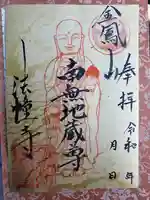 奉拝
令和 年
月 日
南無地蔵尊
金鳳山
法幢寺